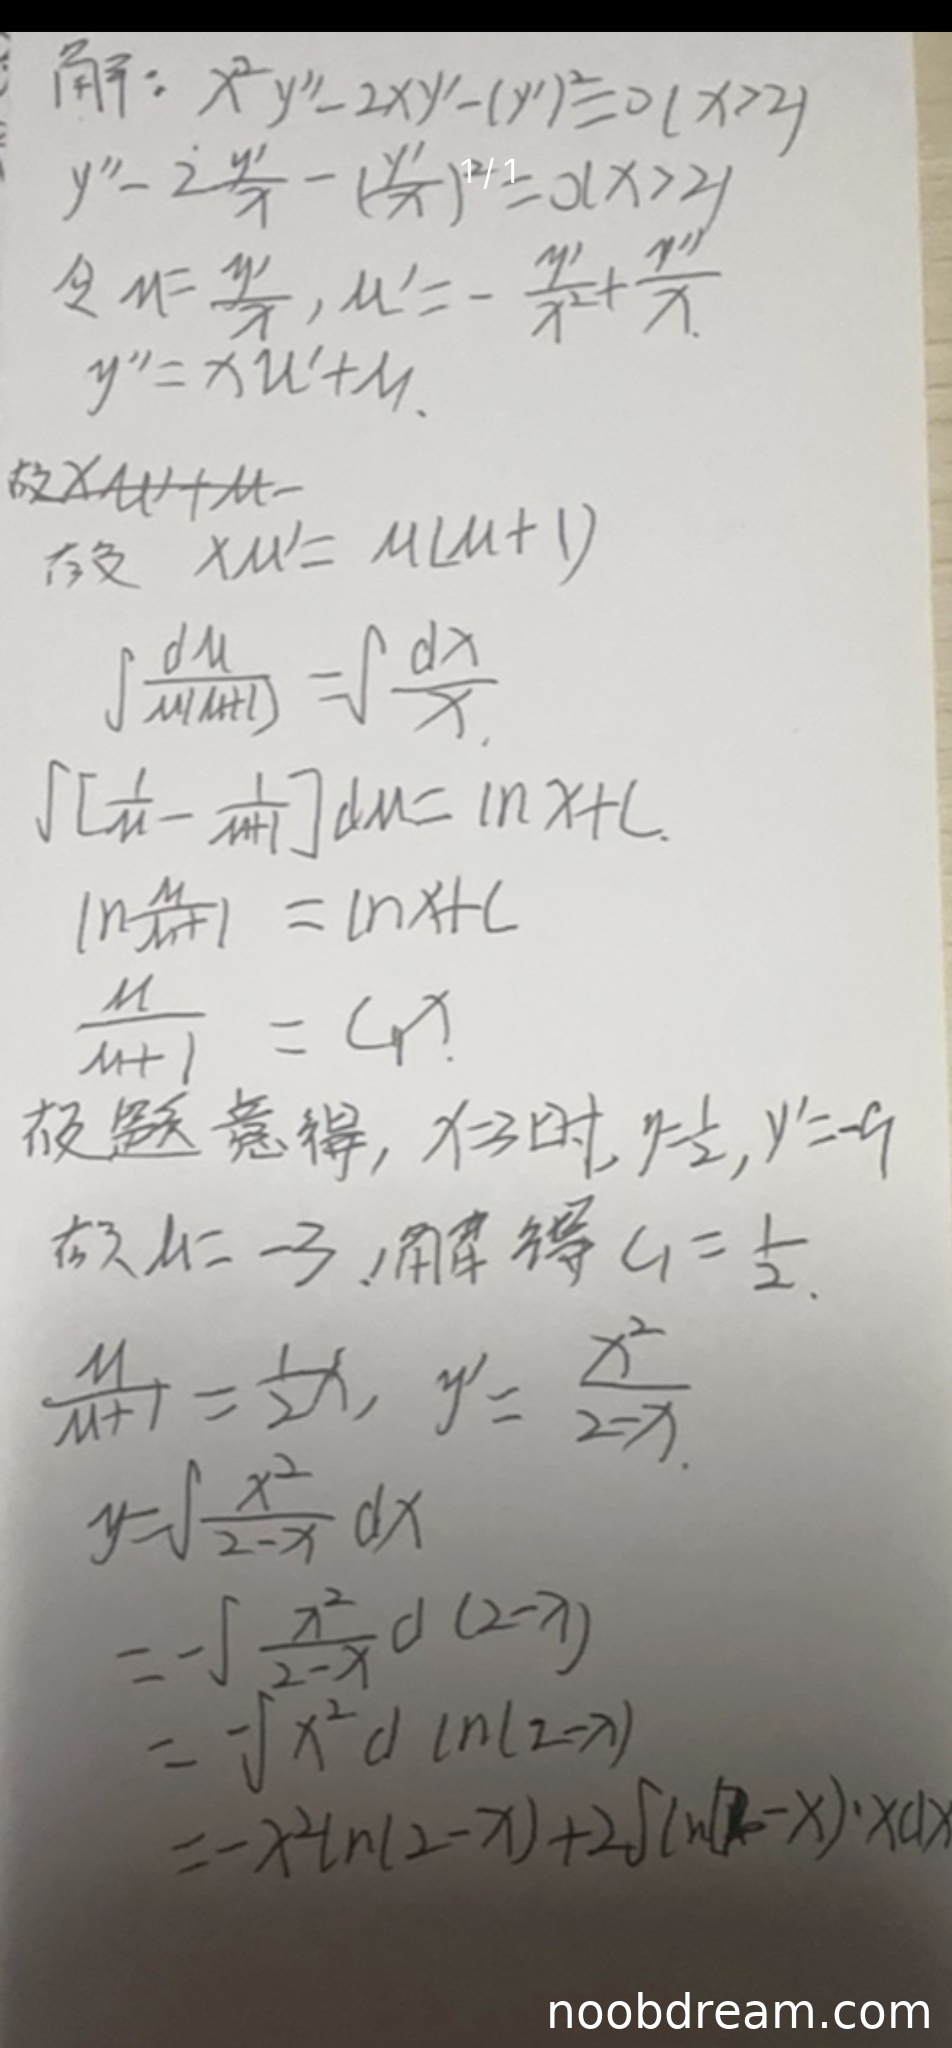 解: x²y''-2xy'-(y')²=0(x>2)
y''-2y'/x-(y'/x)²=0(x>2)
1/1
令u=y'/x, u'=-y'/x²+y''/x.
y''=xu'+u.
故xu'+u-
故 xu'=u(u+1)
∫du/u(u+1)=∫dx/x.
∫[1/u-1/(u+1)]du=lnx+C.
ln u/(u+1)=lnx+C
u/(u+1)=C₁x.
故题意得, x=3时, y=1/2, y'=-9
故u=-3, 解得C₁=1/2.
u/(u+1)=1/2x, y'=x²/(2-x).
y=∫x²/(2-x)dx
=-∫x²/(2-x)d(2-x)
=-∫x²d ln(2-x)
=-x²ln(2-x)+2∫ln(2-x)·xdx
noobdream.com